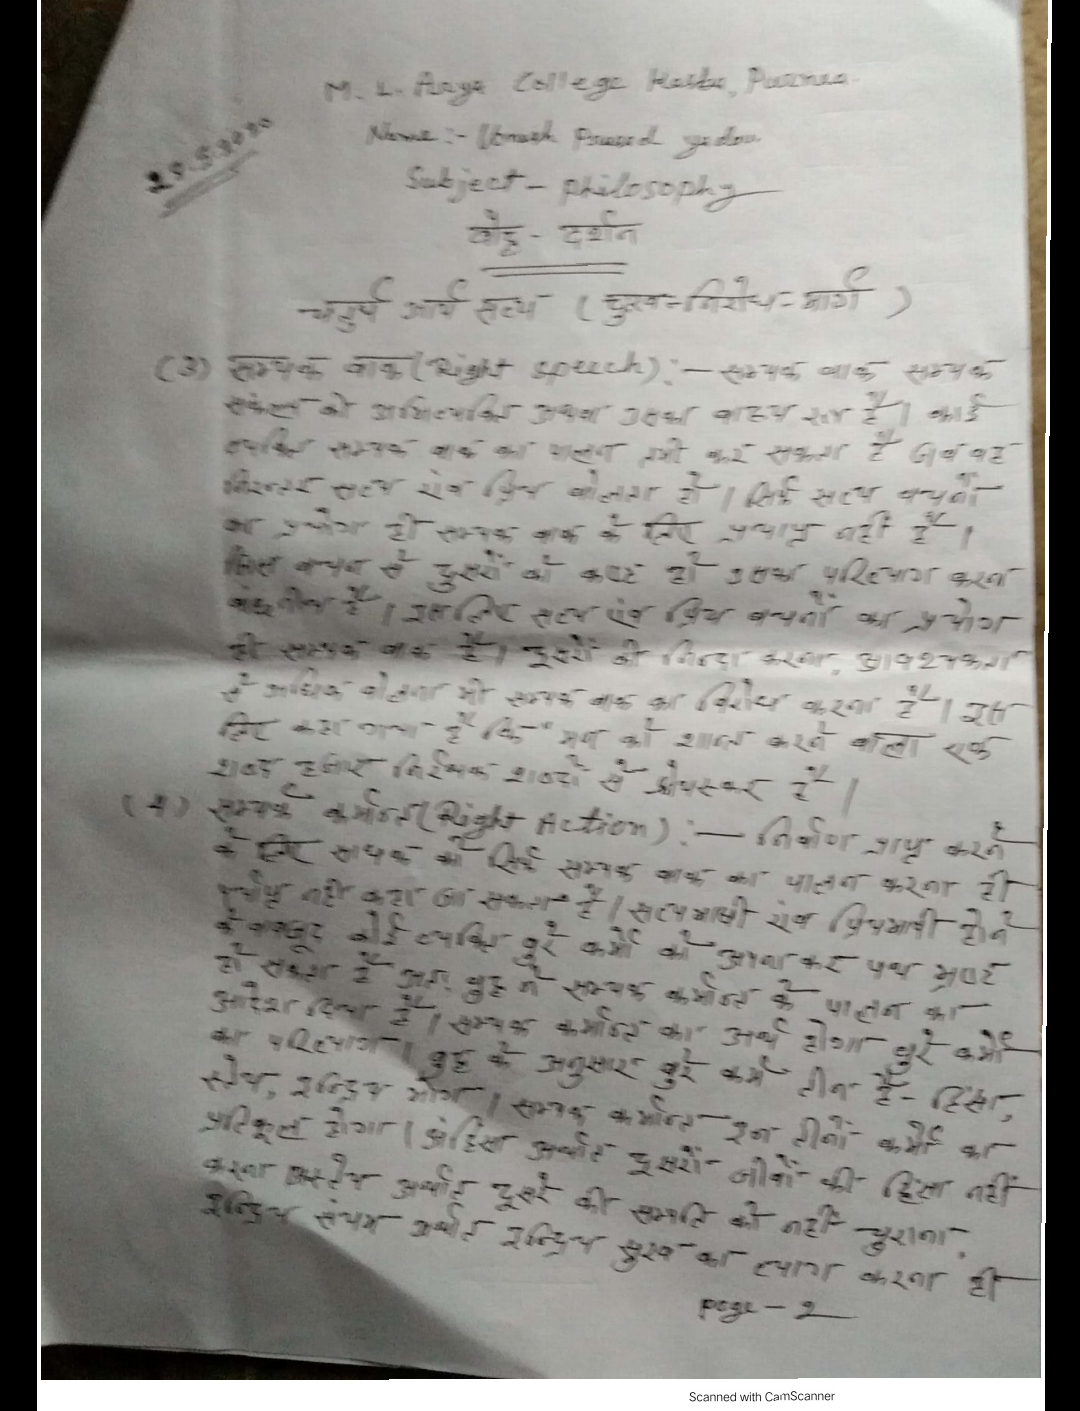 M. L. Arya College Kasba, Purnea.
29.5.2020
Name :- Umesh Prasad yadav
Subject - philosophy
बौद्ध - दर्शन
चतुर्थ आर्य सत्य ( दुःख-निरोध-मार्ग )
(3) सम्यक वाक (Right speech) :- सम्यक वाक सम्यक
संकल्प की अभिव्यक्ति अथवा उसका वाह्य रूप है। कोई
व्यक्ति सम्यक वाक का पालन तभी कर सकता है जब वह
निरन्तर सत्य एंव प्रिय बोलता हो। सिर्फ सत्य वचनों
का प्रयोग ही सम्यक वाक के लिए प्रयाप्त नहीं है।
जिस वचन से दुसरों को कष्ट हो उसका परित्याग करना
वांछनीय है। इसलिए सत्य एंव प्रिय वचनों का प्रयोग
ही सम्यक वाक है। दूसरों की निन्दा करना, आवश्यकता
से अधिक बोलना भी सम्यक वाक का विरोध करना है। इस
लिए कहा गया है कि "मन को शान्त करने वाला एक
शब्द हजार निरर्थक शब्दों से श्रेयस्कर है।
(4) सम्यक कर्मान्त (Right Action) :- निर्वाण प्राप्त करने
के लिए साधक को सिर्फ सम्यक वाक का पालन करना ही
पर्याप्त नहीं कहा जा सकता है। सत्यभाषी एंव प्रियभाषी होने
के बावजूद कोई व्यक्ति बुरे कर्मों को अपनाकर पथ भ्रष्ट
हो सकता है अतः बुद्ध ने सम्यक कर्मान्त के पालन का
आदेश दिया है। सम्यक कर्मान्त का अर्थ होगा बुरे कर्मों
का परित्याग। बुद्ध के अनुसार बुरे कर्म तीन हैं - हिंसा,
स्तेय, इन्द्रिय भोग। सम्यक कर्मान्त इन तीनों कर्मों का
प्रतिकूल होगा। अंहिसा अर्थात दूसरों जीवों की हिंसा नहीं
करना अस्तेय अर्थात दूसरे की सम्पति को नहीं चुराना,
इन्द्रिय संयम अर्थात इन्द्रिय सुख का त्याग करना ही
page - 2
Scanned with CamScanner